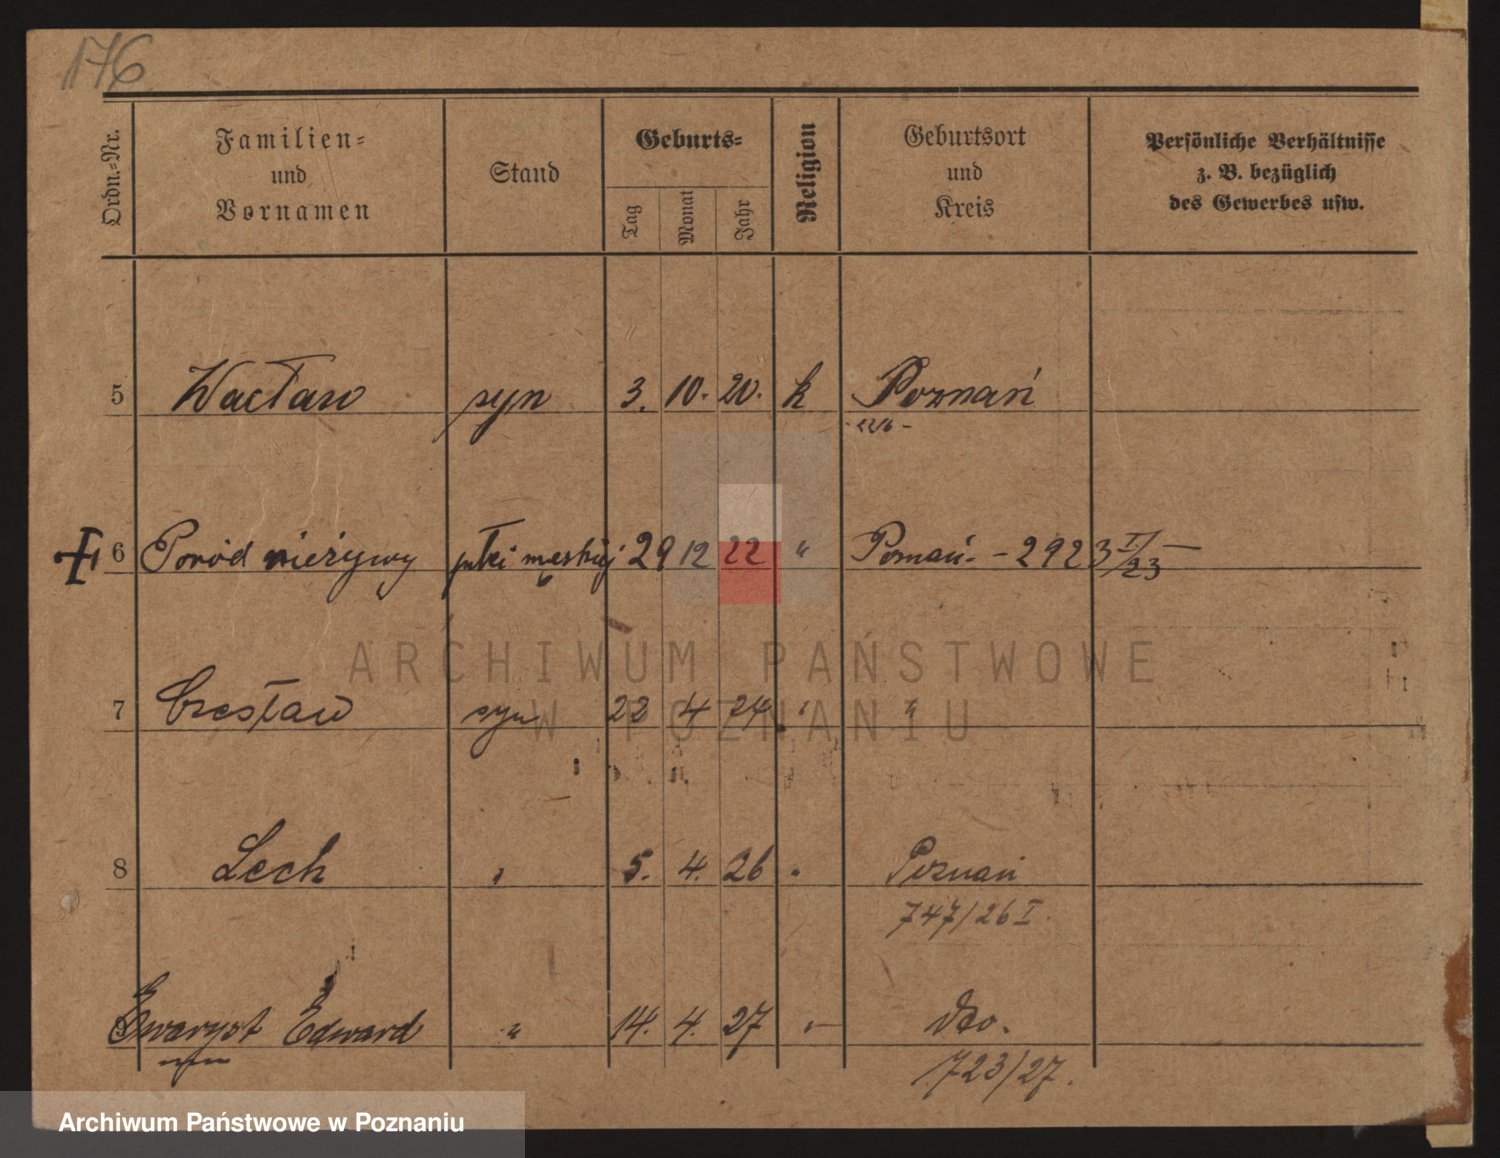 176
Ordn.-Nr.
Familien-
und
Vornamen
Stand
Geburts-
Tag
Monat
Jahr
Religion
Geburtsort
und
Kreis
Persönliche Verhältnisse
z. B. bezüglich
des Gewerbes usw.
5 Wacław syn 3. 10. 20. k Poznań
6 Poród nieżywy płci męskiej 29 12 22 " Poznań - 2923 I/23 -
ARCHIWUM PAŃSTWOWE
W POZNANIU
7 Czesław syn 22 4 24 " "
8 Lech " 5. 4. 26 " Poznań
747/26 I.
9 Ewaryst Edward " 14. 4. 27 " dto.
723/27.
Archiwum Państwowe w Poznaniu